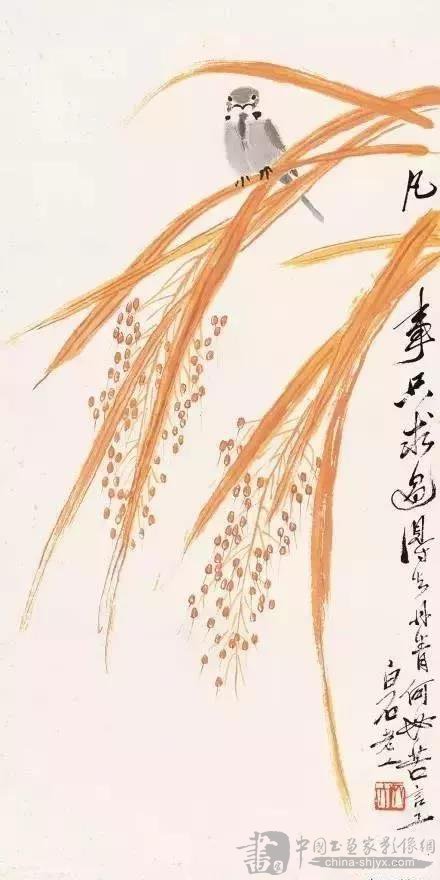 凡事只求過得去丹青何必苦言工
白石老人
畫
中國书画家影像網
china-shjyx.com